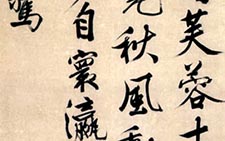 芙蓉十
秋風
自寰瀛